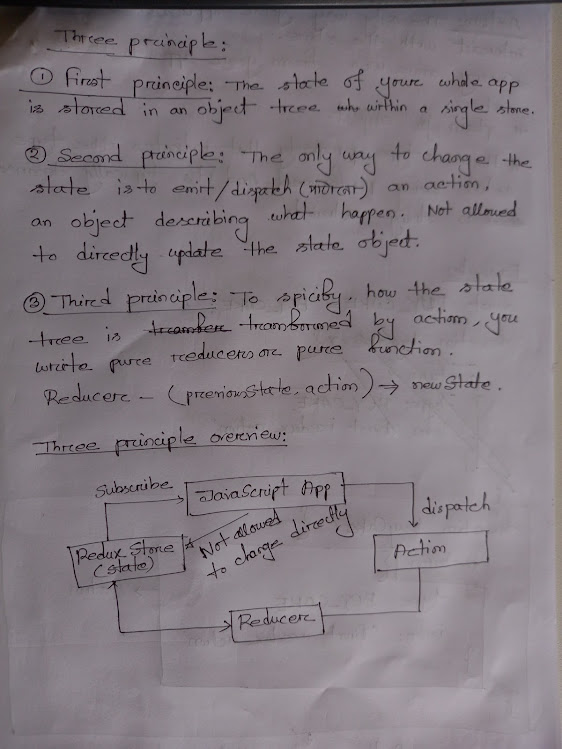 Three principle:
① First principle: The state of your whole app
is stored in an object tree within a single store.
② Second principle: The only way to change the
state is to emit/dispatch (পাঠানো) an action,
an object describing what happen. Not allowed
to directly update the state object.
③ Third principle: To spicify, how the state
tree is transformed by action, you
write pure reducers or pure function.
Reducer - (previousState, action) → newState.
Three principle overview:
Subscribe
JavaScript App
dispatch
Redux Store
(state)
Not allowed
to change directly
Action
Reducer